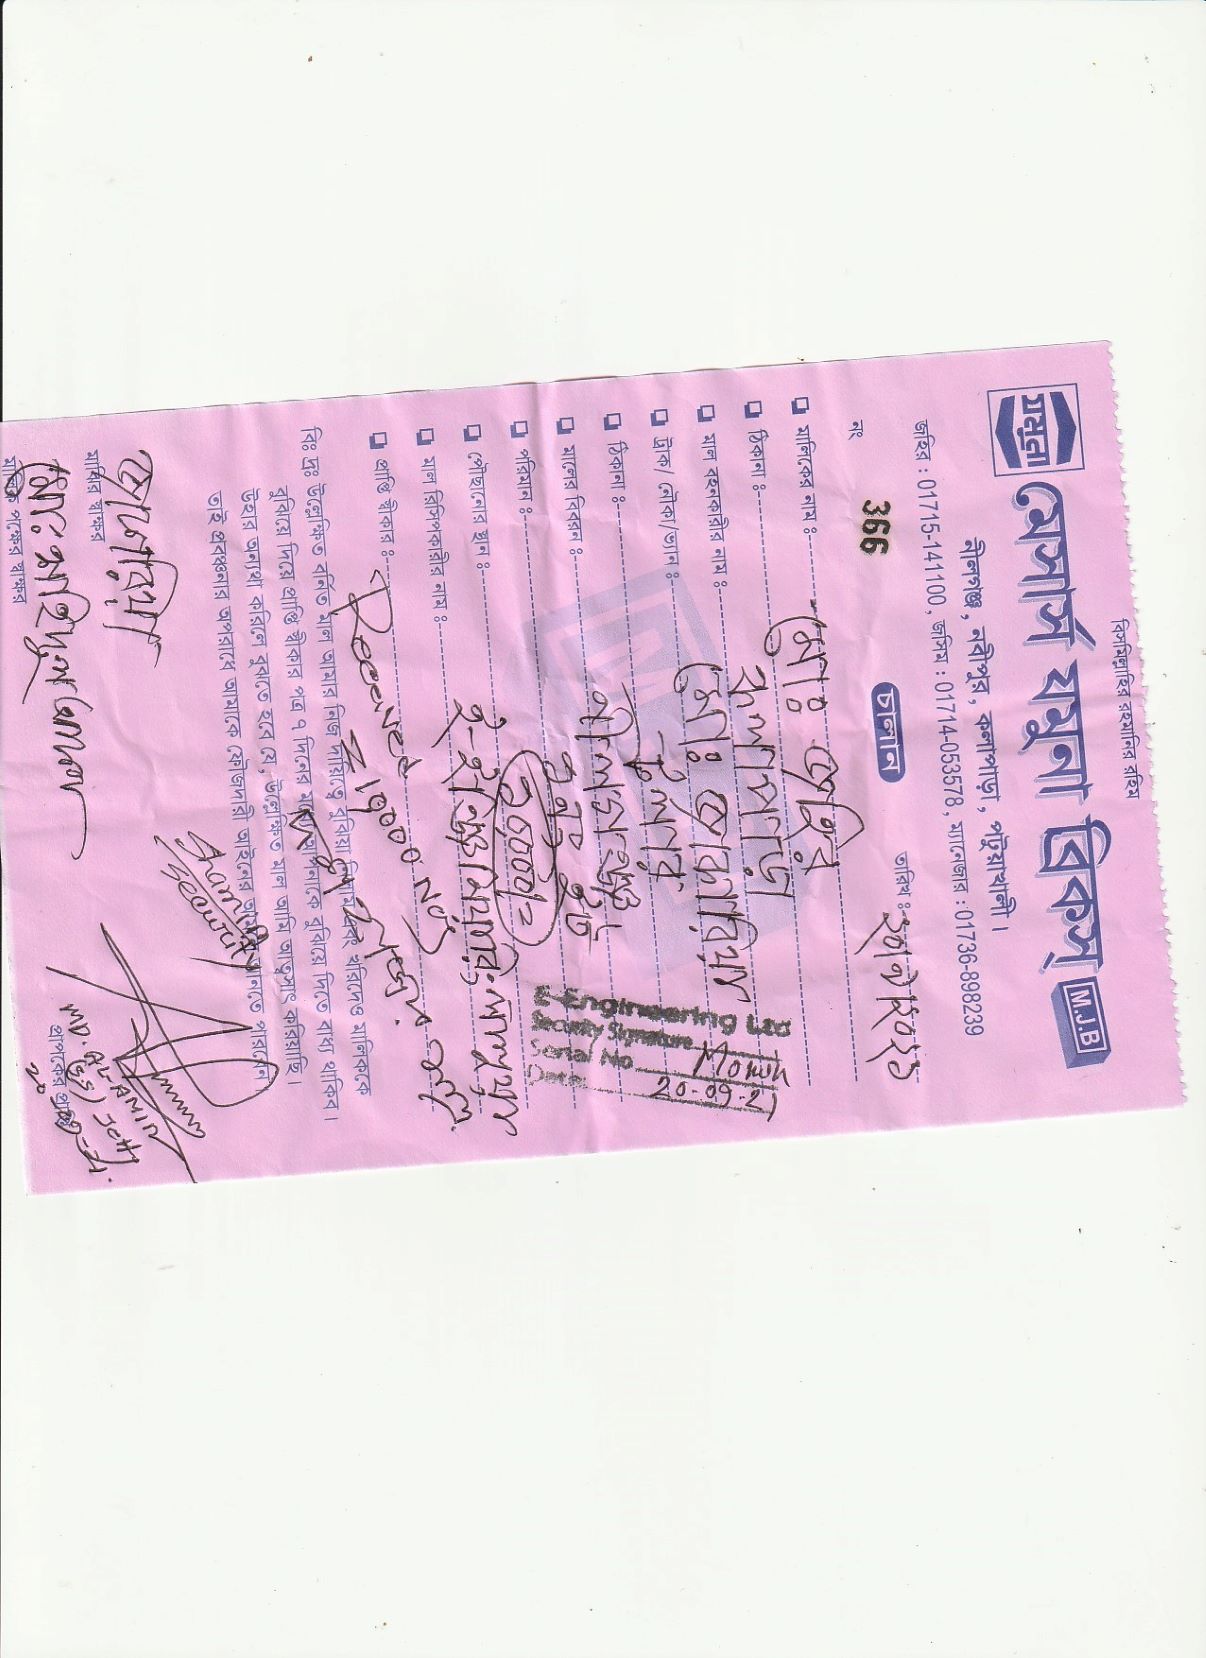 বিসমিল্লাহির রহমানির রহিম
যমুনা
মেসার্স যমুনা ব্রিকস্
M.J.B
নীলগঞ্জ, নবীপুর, কলাপাড়া, পটুয়াখালী।
জহির : 01715-141100, জসিম : 01714-053578, ম্যানেজার : 01736-898239
নং 366
চালান
তারিখ ঃ ২০/৯/২০২১
মালিকের নাম ঃ মোঃ জহির
ঠিকানা ঃ কলাপাড়া
মাল বহনকারীর নাম ঃ মোঃ জাকারিয়া
ট্রাক/ নৌকা/ভ্যান ঃ ট্রলার
ঠিকানা ঃ নীলগঞ্জ
মালের বিবরন ঃ ১নং ইট
পরিমান ঃ
পৌছানোর স্থান ঃ ই-ইঞ্জিনিয়ারিং
মাল রিসিপকারীর নাম ঃ
প্রাপ্তি স্বীকার ঃ Received
E-Engineering Ltd
Security Signature
Serial No
Date 20-09-21
বিঃ দ্রঃ উল্লেক্ষিত বর্নিত মাল আমার নিজ দায়িত্বে বুঝিয়া নিলাম এবং খরিদেও মালিককে
বুঝিয়ে দিয়ে প্রাপ্তি স্বীকার পত্র ৭ দিনের মধ্যে আপনাকে বুঝিয়ে দিতে বাধ্য থাকিব।
উহার অন্যথা করিলে বুঝতে হবে যে, উল্লেক্ষিত মাল আমি আত্বসাৎ করিয়াছি।
তাই প্রবঞ্চনার অপরাধে আমাকে ফৌজদারী আইনের আমলে আনতে পারবেন।
Security
জাকারিয়া
মাঝির স্বাক্ষর
MD. AL-AMIN
(S.S) Jetty
20-09-21.
প্রাপকের প্রাপ্তি
মোঃ শাহিদুল
মালিক পক্ষের স্বাক্ষর